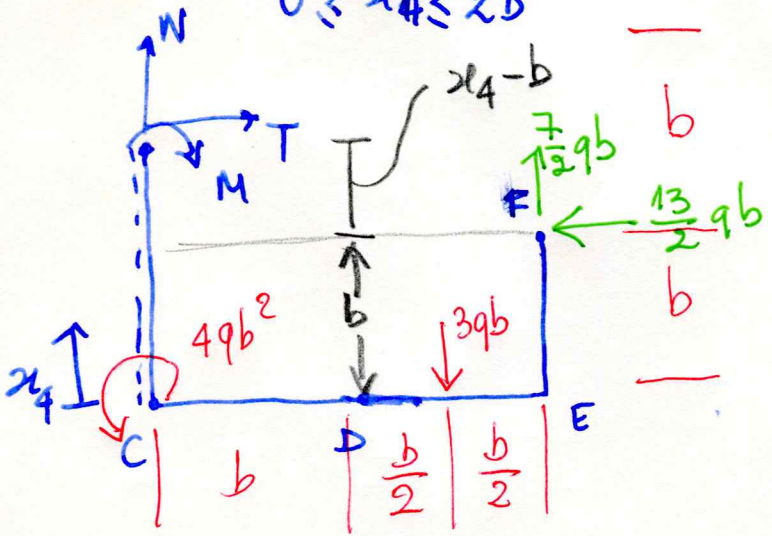 0 ≤ x₄ ≤ 2b
N
x₄-b
b
T
M
7/2 qb
F
13/2 qb
b
4qb²
b
3qb
x₄
C
D
E
b
b/2
b/2